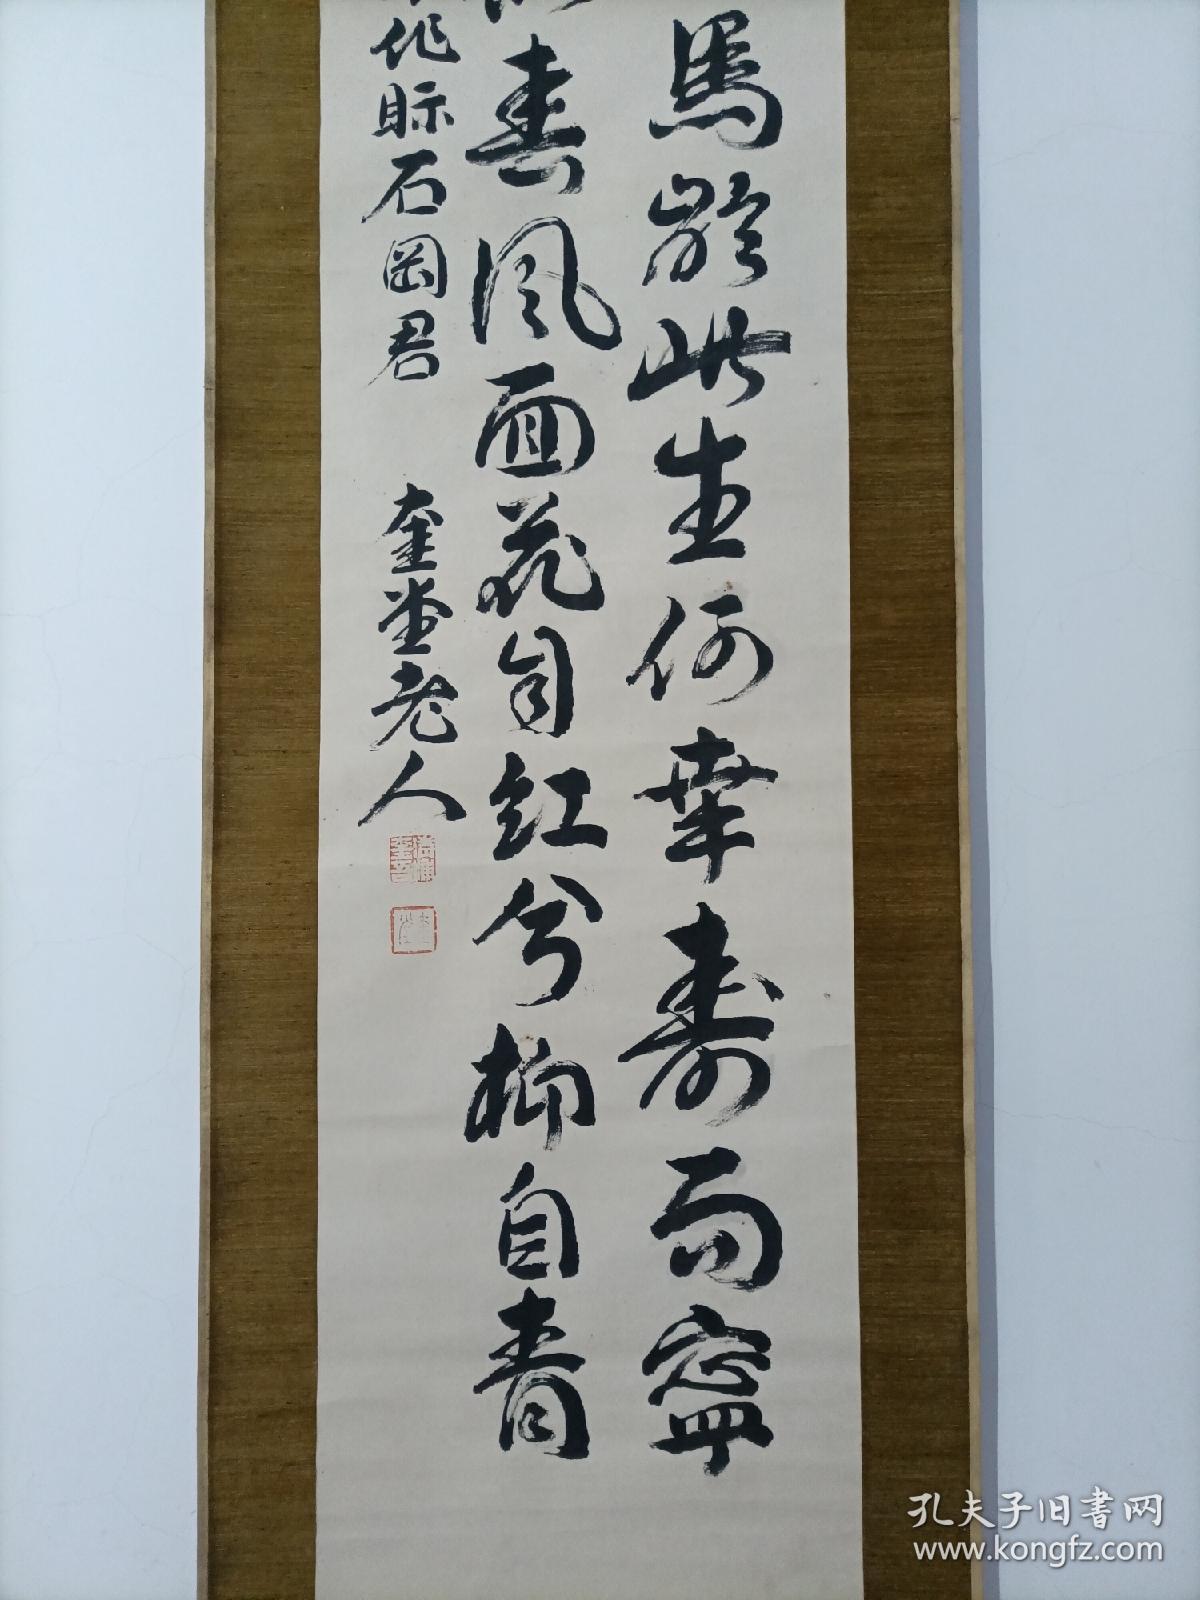 馬齡此生何幸壽而寧
春風面花自紅兮柳自青
作眎石岡君
奎堂老人
孔夫子旧书网
www.kongfz.com